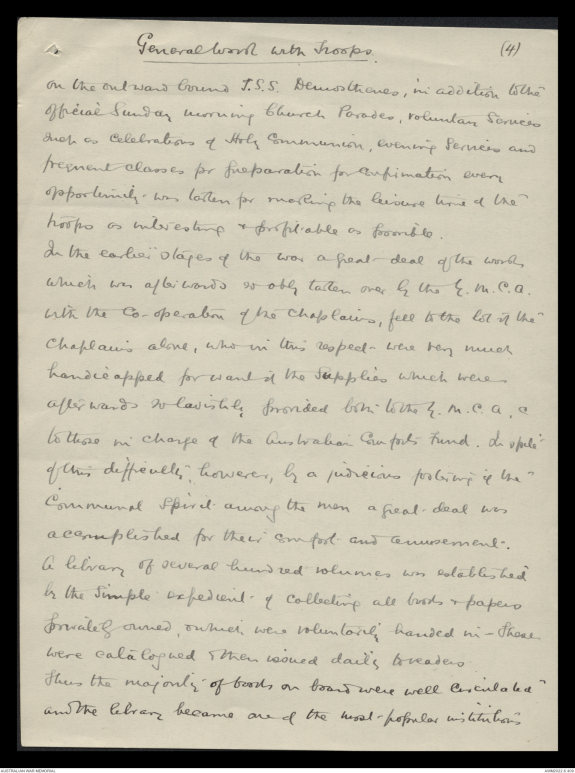 General Work with Troops. (4)
on the outward bound T.S.S. Demosthenes, in addition to the
official Sunday morning Church Parades, voluntary Services
such as celebrations of Holy Communion, evening Services and
frequent classes for preparation for Confirmation every
opportunity was taken for making the leisure time of the
troops as interesting & profitable as possible.
In the earlier stages of the war a great deal of the work
which was afterwards so ably taken over by the Y.M.C.A.
with the Co-operation of the Chaplains, fell to the lot of the
Chaplains alone, who in this respect were very much
handicapped for want of the supplies which were
afterwards so lavishly provided both to the Y.M.C.A., &
to those in charge of the Australian Comforts Fund. In spite
of this difficulty, however, by a judicious fostering of the
Communal Spirit among the men a great deal was
accomplished for their comfort and amusement.
A library of several hundred volumes was established
by the simple expedient of collecting all books & papers
privately owned, which were voluntarily handed in - These
were catalogued & then issued daily to readers
Thus the majority of books on board were well circulated
and the library became one of the most popular institutions
AUSTRALIAN WAR MEMORIAL